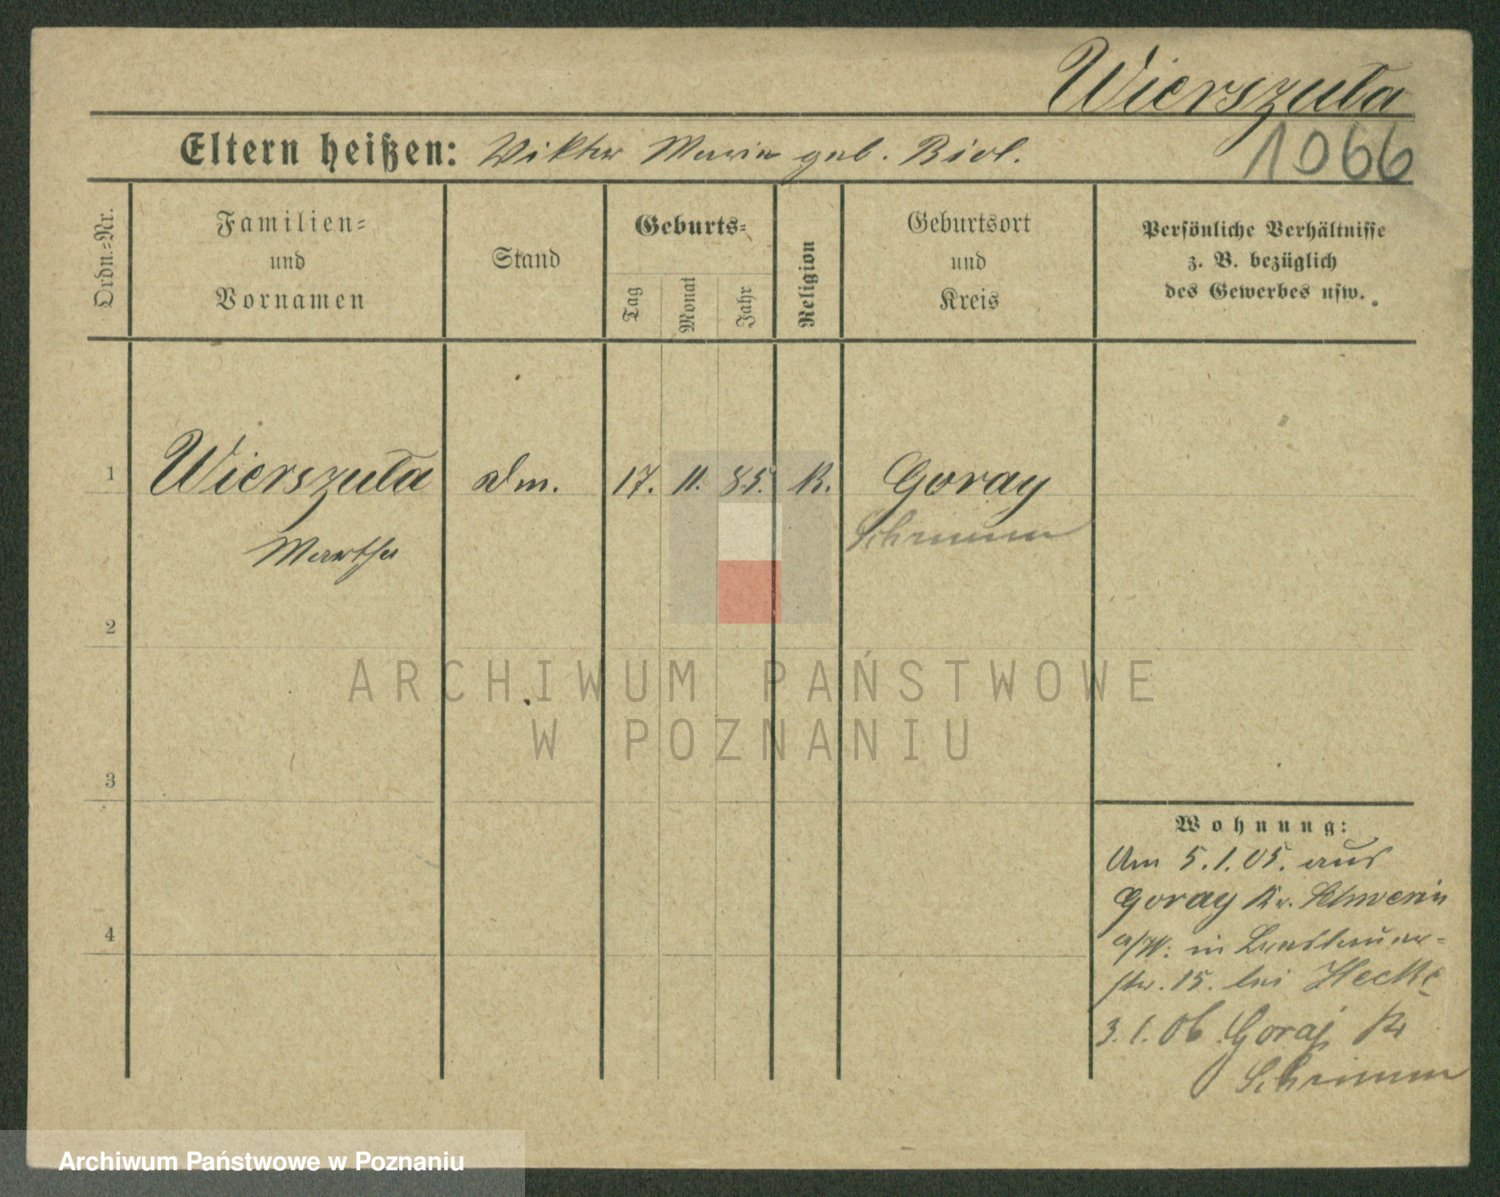 Wierszuła
1066
Eltern heißen: Viktor Maria geb. Biol.
Ordn.-Nr.
Familien-
und
Vornamen
Stand
Geburts-
Tag
Monat
Jahr
Religion
Geburtsort
und
Kreis
Persönliche Verhältnisse
z. B. bezüglich
des Gewerbes usw.
1 Wierszuła 17. 11. 85. K. Goray
Schrimm
Martha
2
3
4
ARCHIWUM PAŃSTWOWE
W POZNANIU
Wohnung:
Am 5.1.05. aus
Goray Kr. Schwerin
a/W. in
str. 15. bei Hecke
3.1.06 Goraj Kr
Schrimm
Archiwum Państwowe w Poznaniu